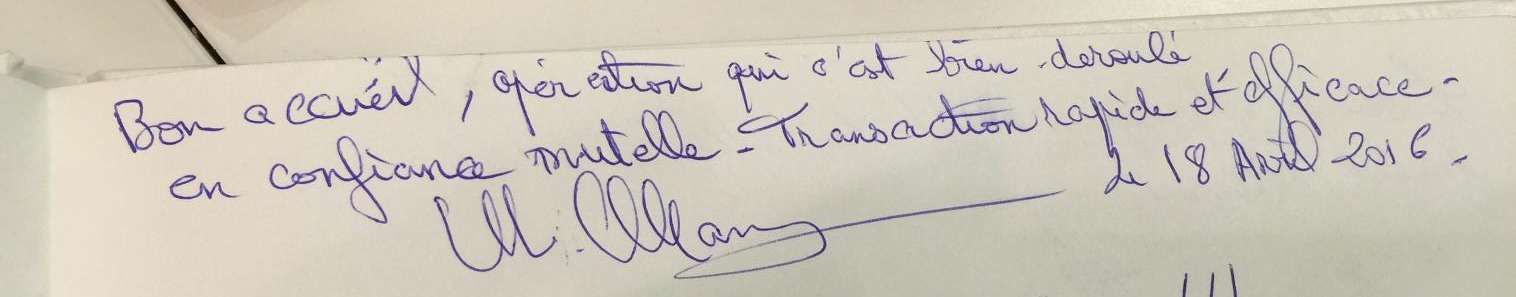 Bon accueil, opération qui c'est bien deroulé
en confiance mutelle - Transaction rapide et efficace -
le 18 Avril 2016.
M.